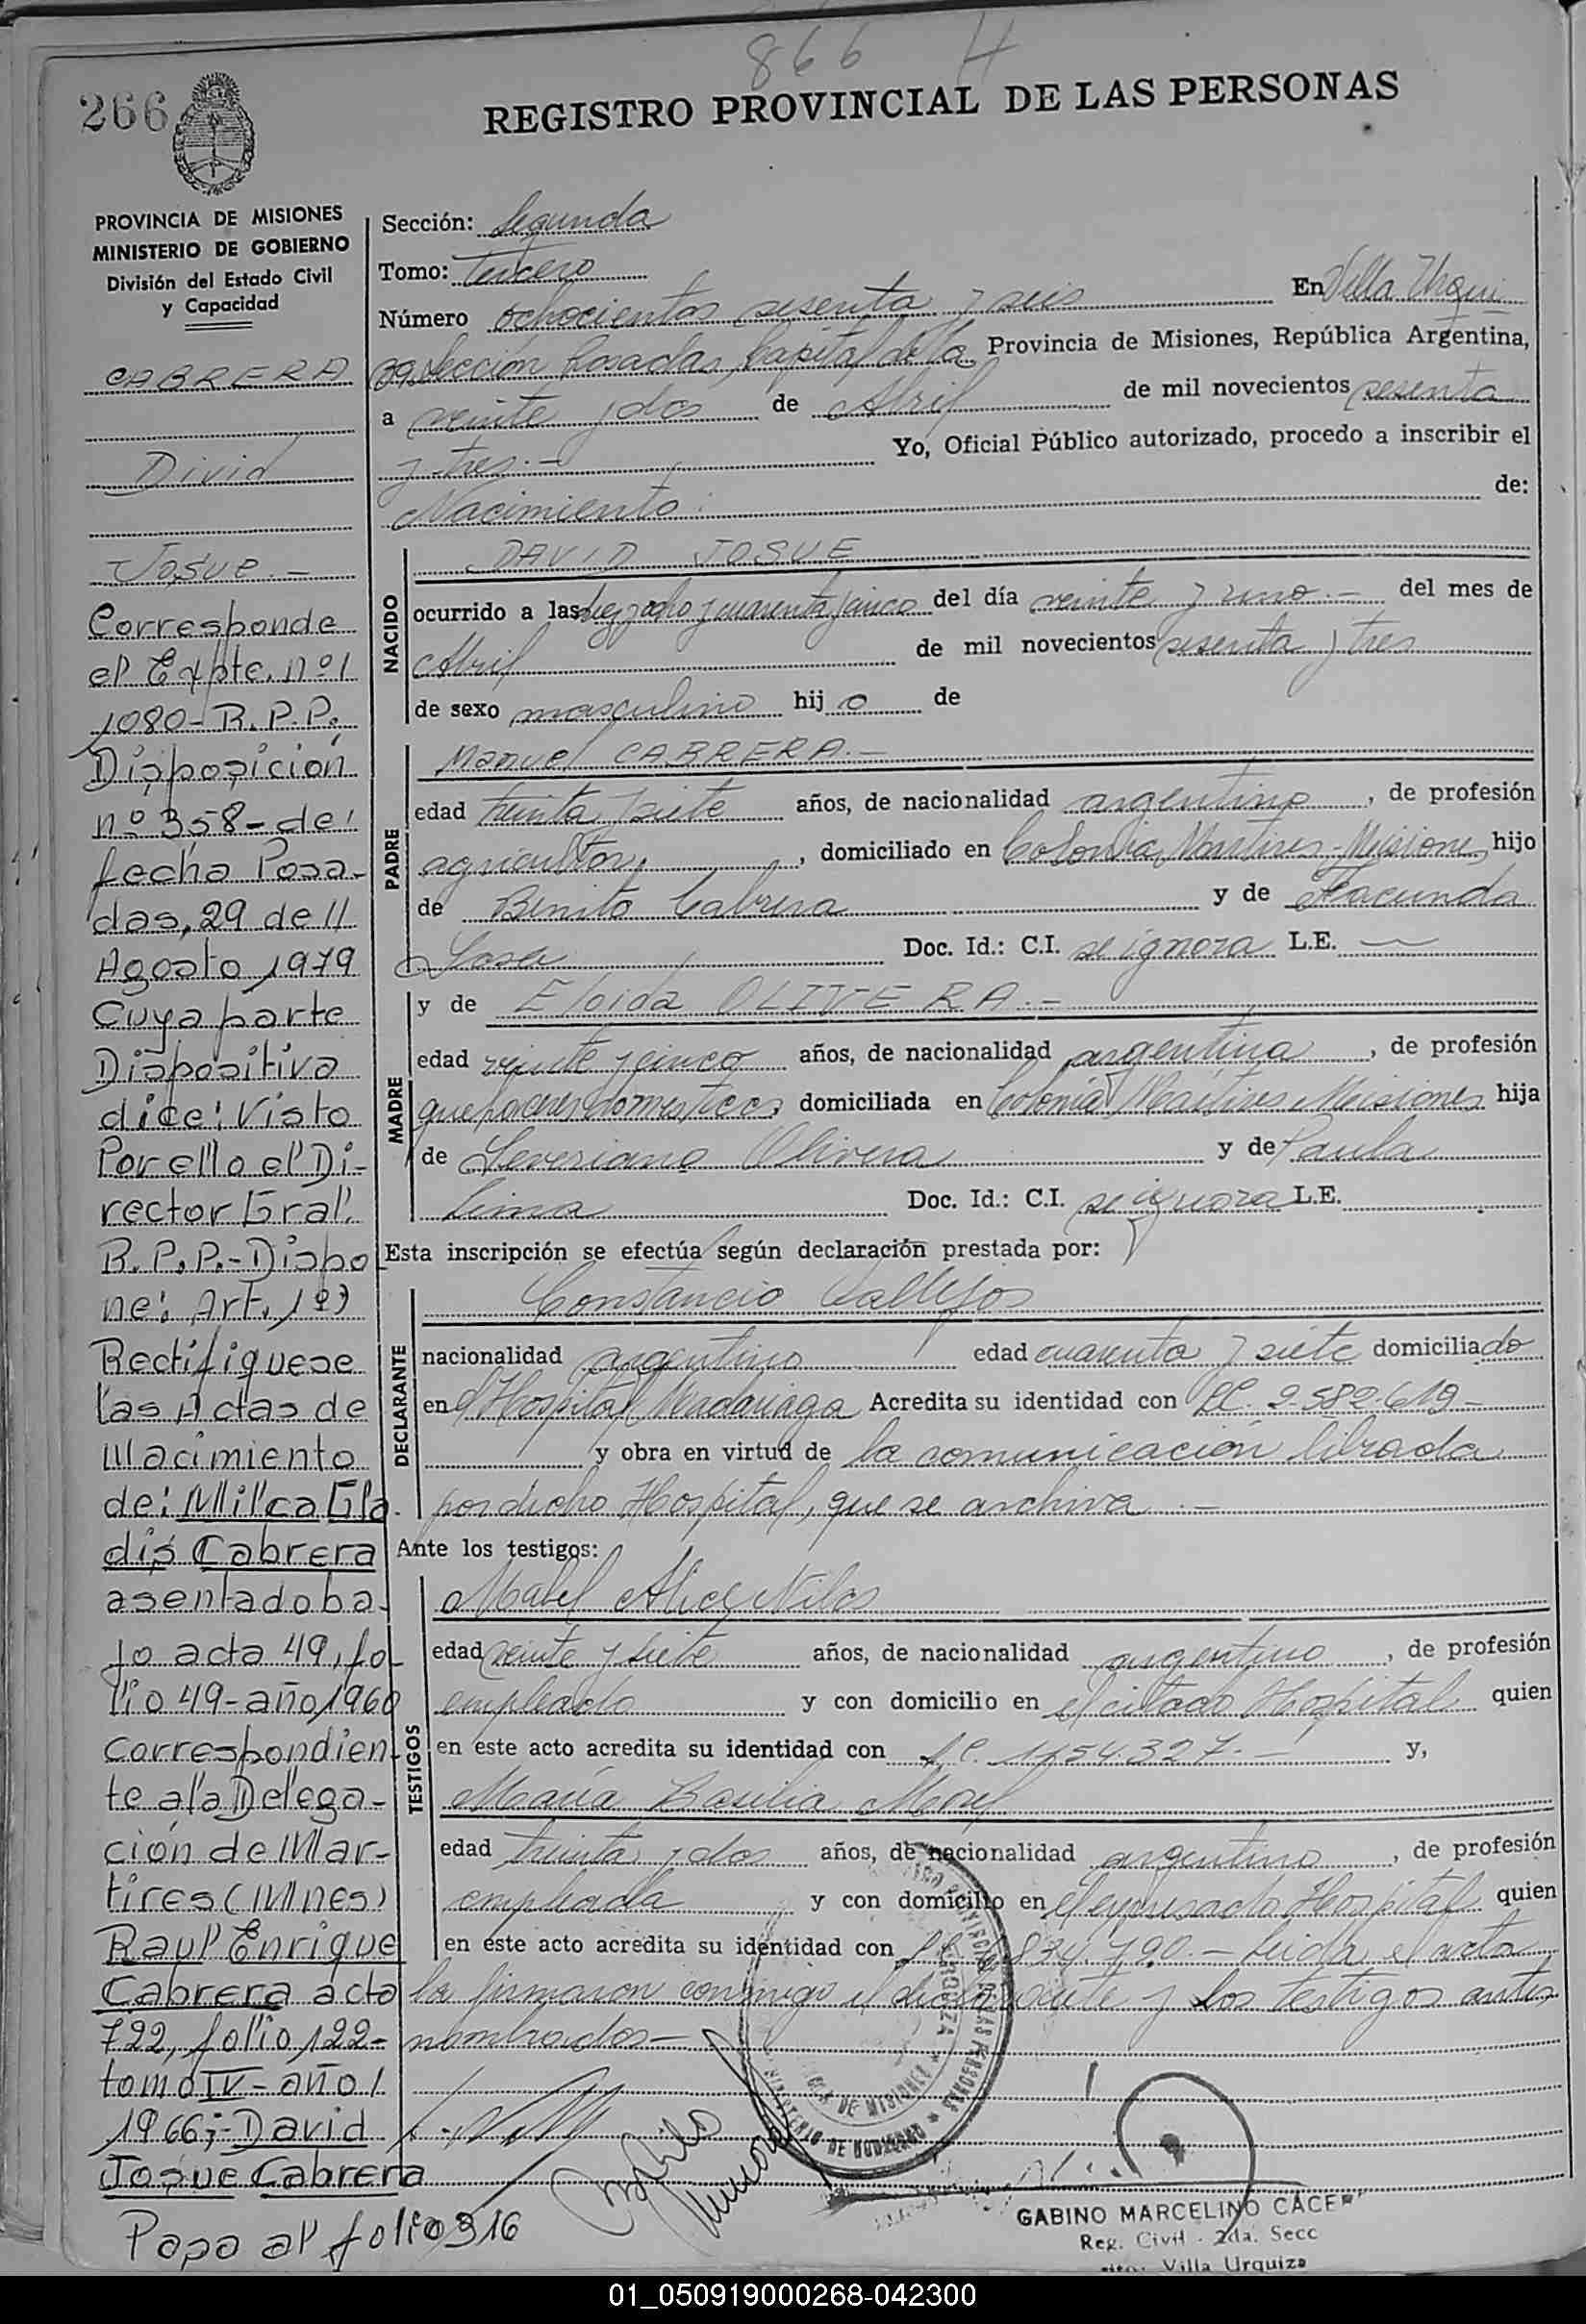 866 H
266
REGISTRO PROVINCIAL DE LAS PERSONAS
PROVINCIA DE MISIONES
MINISTERIO DE GOBIERNO
División del Estado Civil
y Capacidad
CABRERA
Divid
Josue.-
Corresponde
el Expte. nº 1
1080-R.P.P.
Disposición
nº 358-de
fecha Posa-
das, 29 de
Agosto 1979
Cuya parte
Dispositiva
dice: Visto
Por ello el Di-
rector Gral.
R.P.P.-Dispo
ne: Art. 1º)
Rectifiquese
las Actas de
Nacimiento
de: Milca Gla
dis Cabrera
asentado ba-
jo acta 49, fo-
lio 49-año 1960
correspondien-
te a la Delega-
ción de Már-
tires (Mnes)
Raul Enrique
Cabrera acta
722, folio 122-
tomo IV-año
1966;-David
Josue Cabrera
Pasa al folio 316
Sección: Segunda
Tomo: Tercero
Número ochocientos sesenta y seis En Villa Urqui
za, Sección Posadas, Capital de la Provincia de Misiones, República Argentina,
a veinte y dos de Abril de mil novecientos sesenta
y tres.- Yo, Oficial Público autorizado, procedo a inscribir el
Nacimiento de:
NACIDO
DAVID JOSUE
ocurrido a las diez y ocho y cuarenta y cinco del día veinte y uno.- del mes de
Abril de mil novecientos sesenta y tres
de sexo masculino hijo de
PADRE
Manuel CABRERA.-
edad treinta y siete años, de nacionalidad argentino, de profesión
agricultor, domiciliado en Colonia Martires-Misiones hijo
de Benito Cabrera y de Facunda
Sosa Doc. Id.: C.I. se ignora L.E. —
MADRE
y de Eloida OLIVERA.-
edad veinte y cinco años, de nacionalidad argentina, de profesión
quehaceres domesticos, domiciliada en Colonia Martires Misiones hija
de Severiano Olivera y de Paula
Lima Doc. Id.: C.I. se ignora L.E.
Esta inscripción se efectúa según declaración prestada por:
DECLARANTE
Constancio Vallejos
nacionalidad argentino edad cuarenta y siete domiciliado
en Hospital Madariaga Acredita su identidad con 2.582.619-
y obra en virtud de la comunicación librada
por dicho Hospital, que se archiva.-
Ante los testigos:
TESTIGOS
Mabel Alicia
edad veinte y siete años, de nacionalidad argentino, de profesión
empleado y con domicilio en el citado Hospital quien
en este acto acredita su identidad con y,
María Basilia
edad treinta y dos años, de nacionalidad argentino, de profesión
empleada y con domicilio en el expresado Hospital quien
en este acto acredita su identidad con Leida el acta
la firmaron conmigo el declarante y los testigos antes
nombrados-
GABINO MARCELINO CACER
Reg. Civil - 2da. Secc
Villa Urquiza
01_050919000268-042300